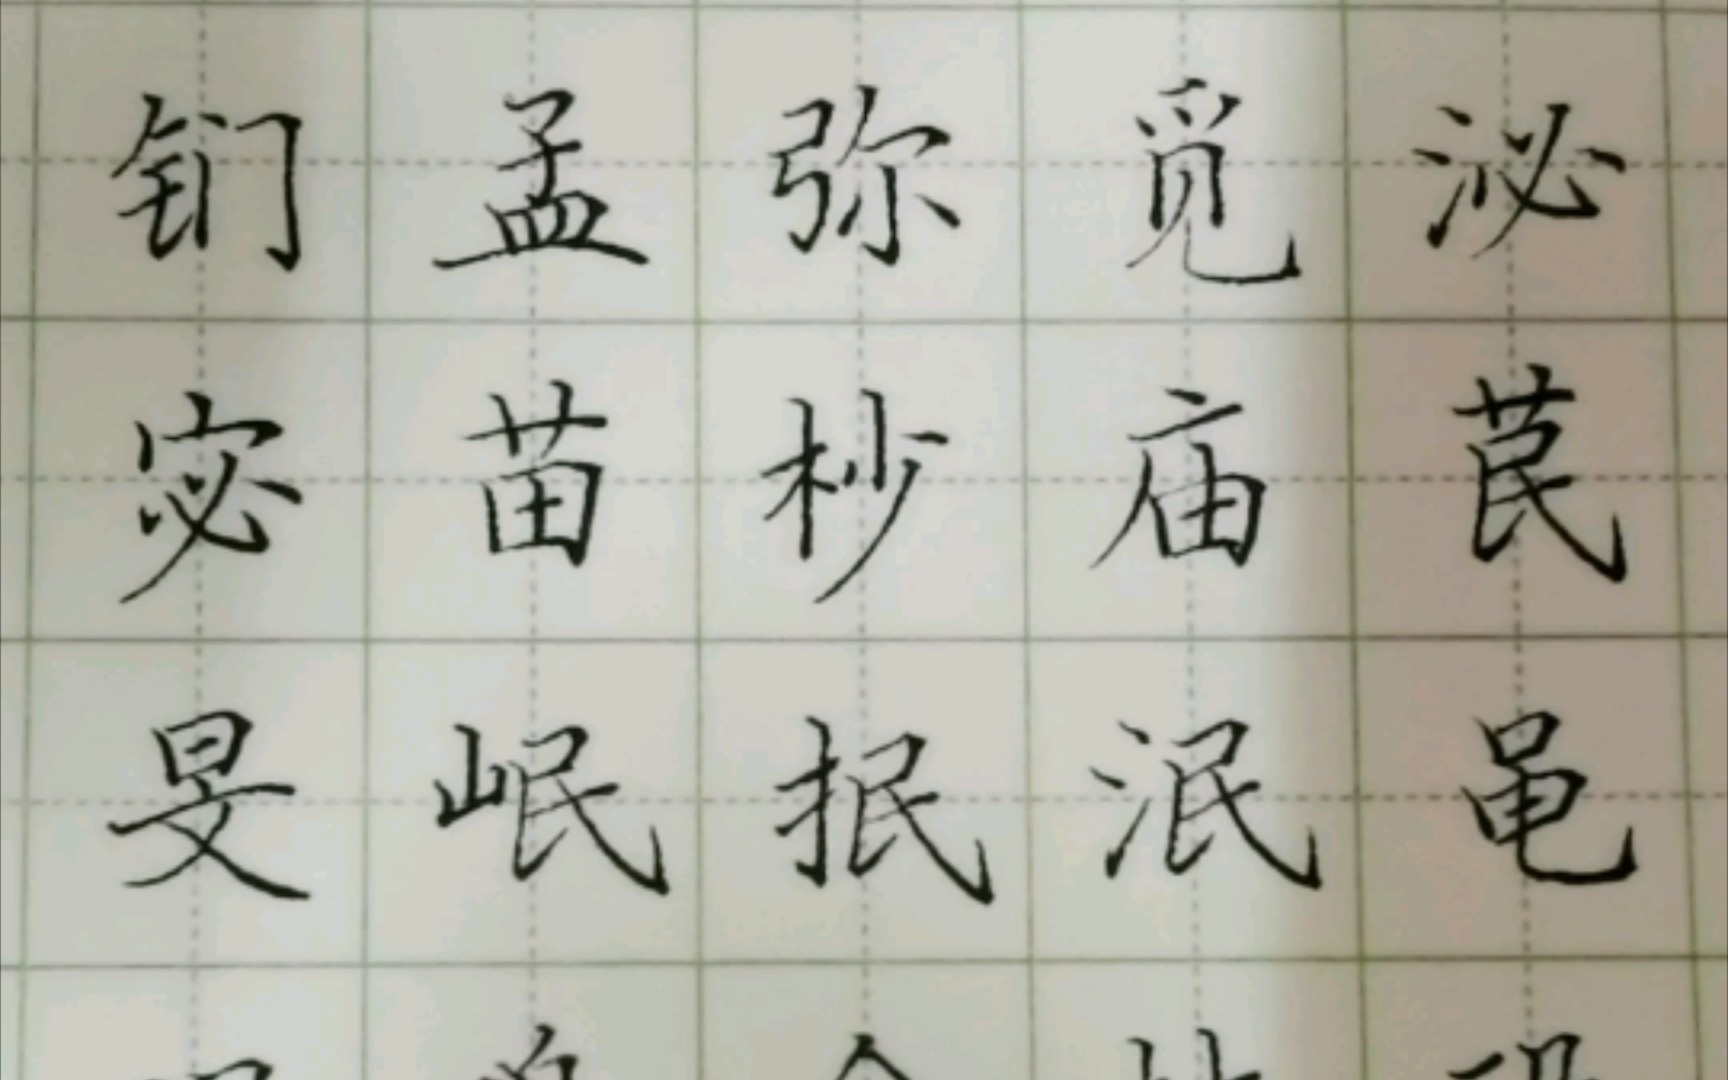 钔孟弥觅泌
宓苗杪庙苠
旻岷抿泯黾